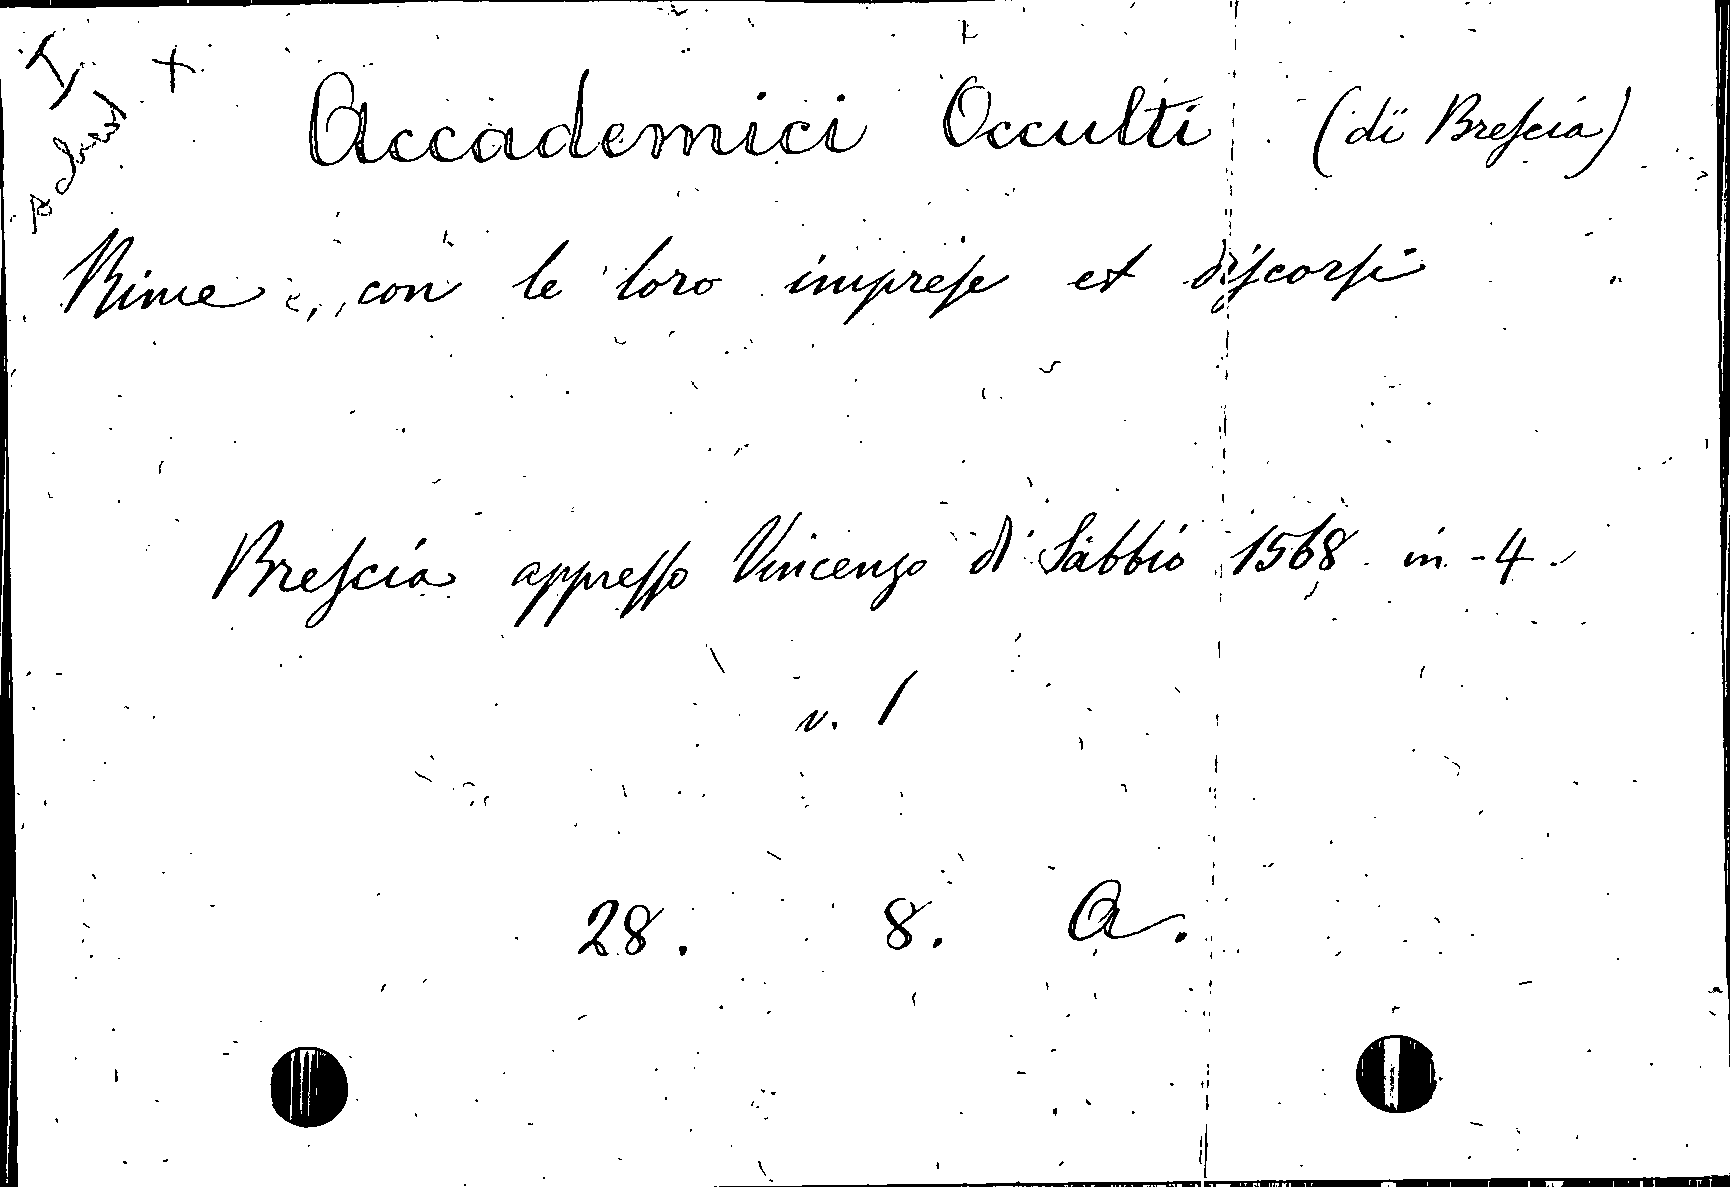 I +
Accademici Occulti (di Breſcia)
Rime, con le loro impreſe et diſcorſi
Breſcia appreſſo Vincenzo di Sabbio 1568 in-4.
v. 1
28. 8. A.